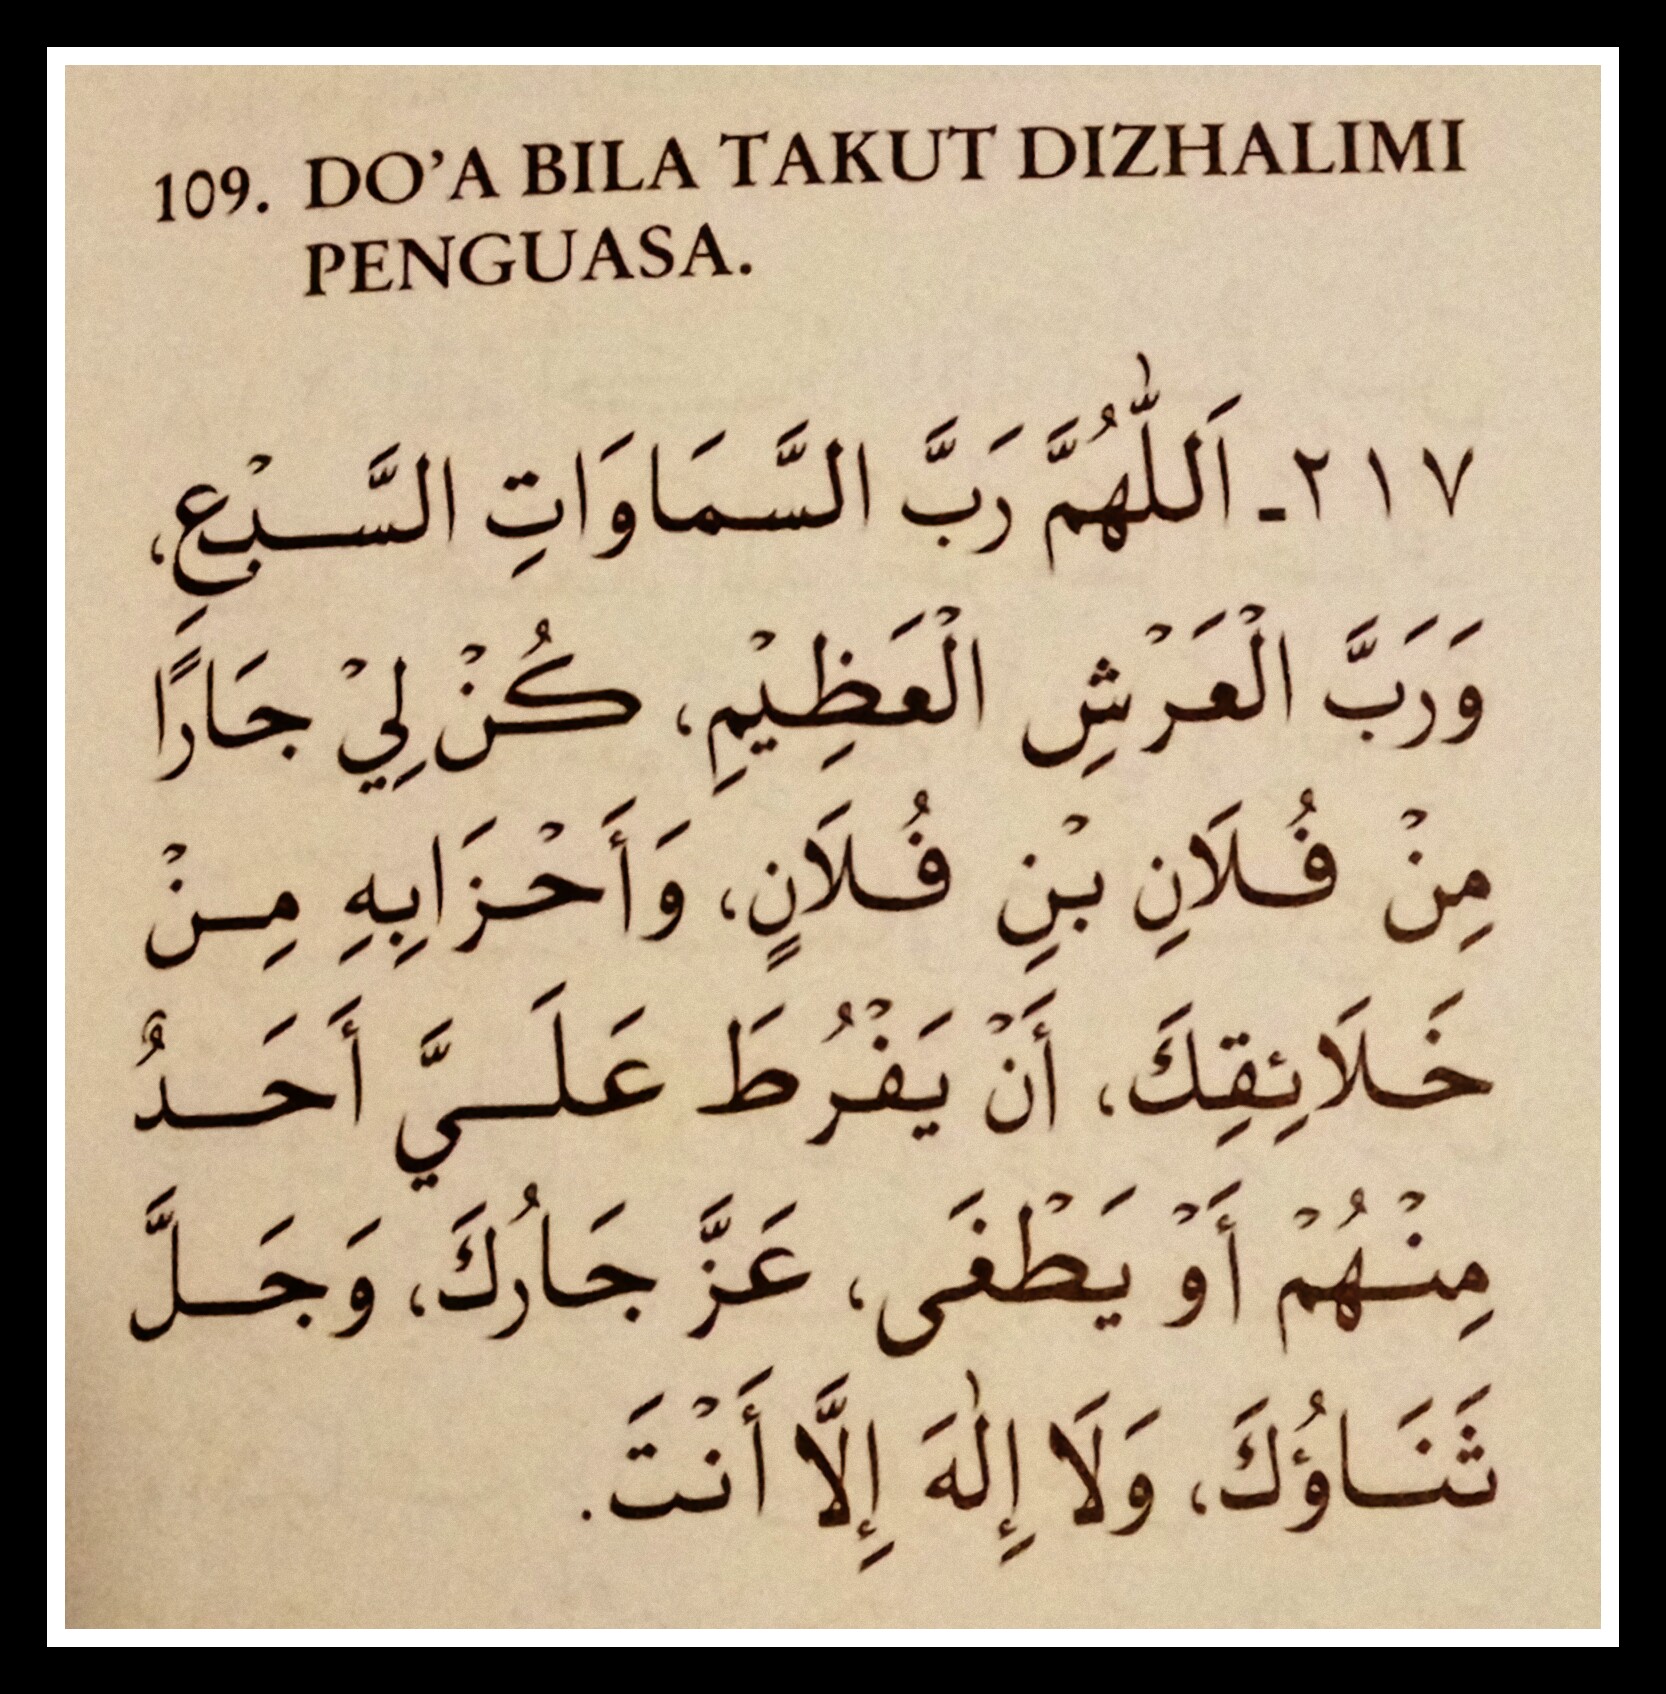 109. DO'A BILA TAKUT DIZHALIMI
PENGUASA.
٢١٧ـ اَللّٰهُمَّ رَبَّ السَّمَاوَاتِ السَّبْعِ،
وَرَبَّ الْعَرْشِ الْعَظِيْمِ، كُنْ لِيْ جَارًا
مِنْ فُلَانِ بْنِ فُلَانٍ، وَأَحْزَابِهِ مِنْ
خَلَائِقِكَ، أَنْ يَفْرُطَ عَلَيَّ أَحَدٌ
مِنْهُمْ أَوْ يَطْغَى، عَزَّ جَارُكَ، وَجَلَّ
ثَنَاؤُكَ، وَلَا إِلٰهَ إِلَّا أَنْتَ.